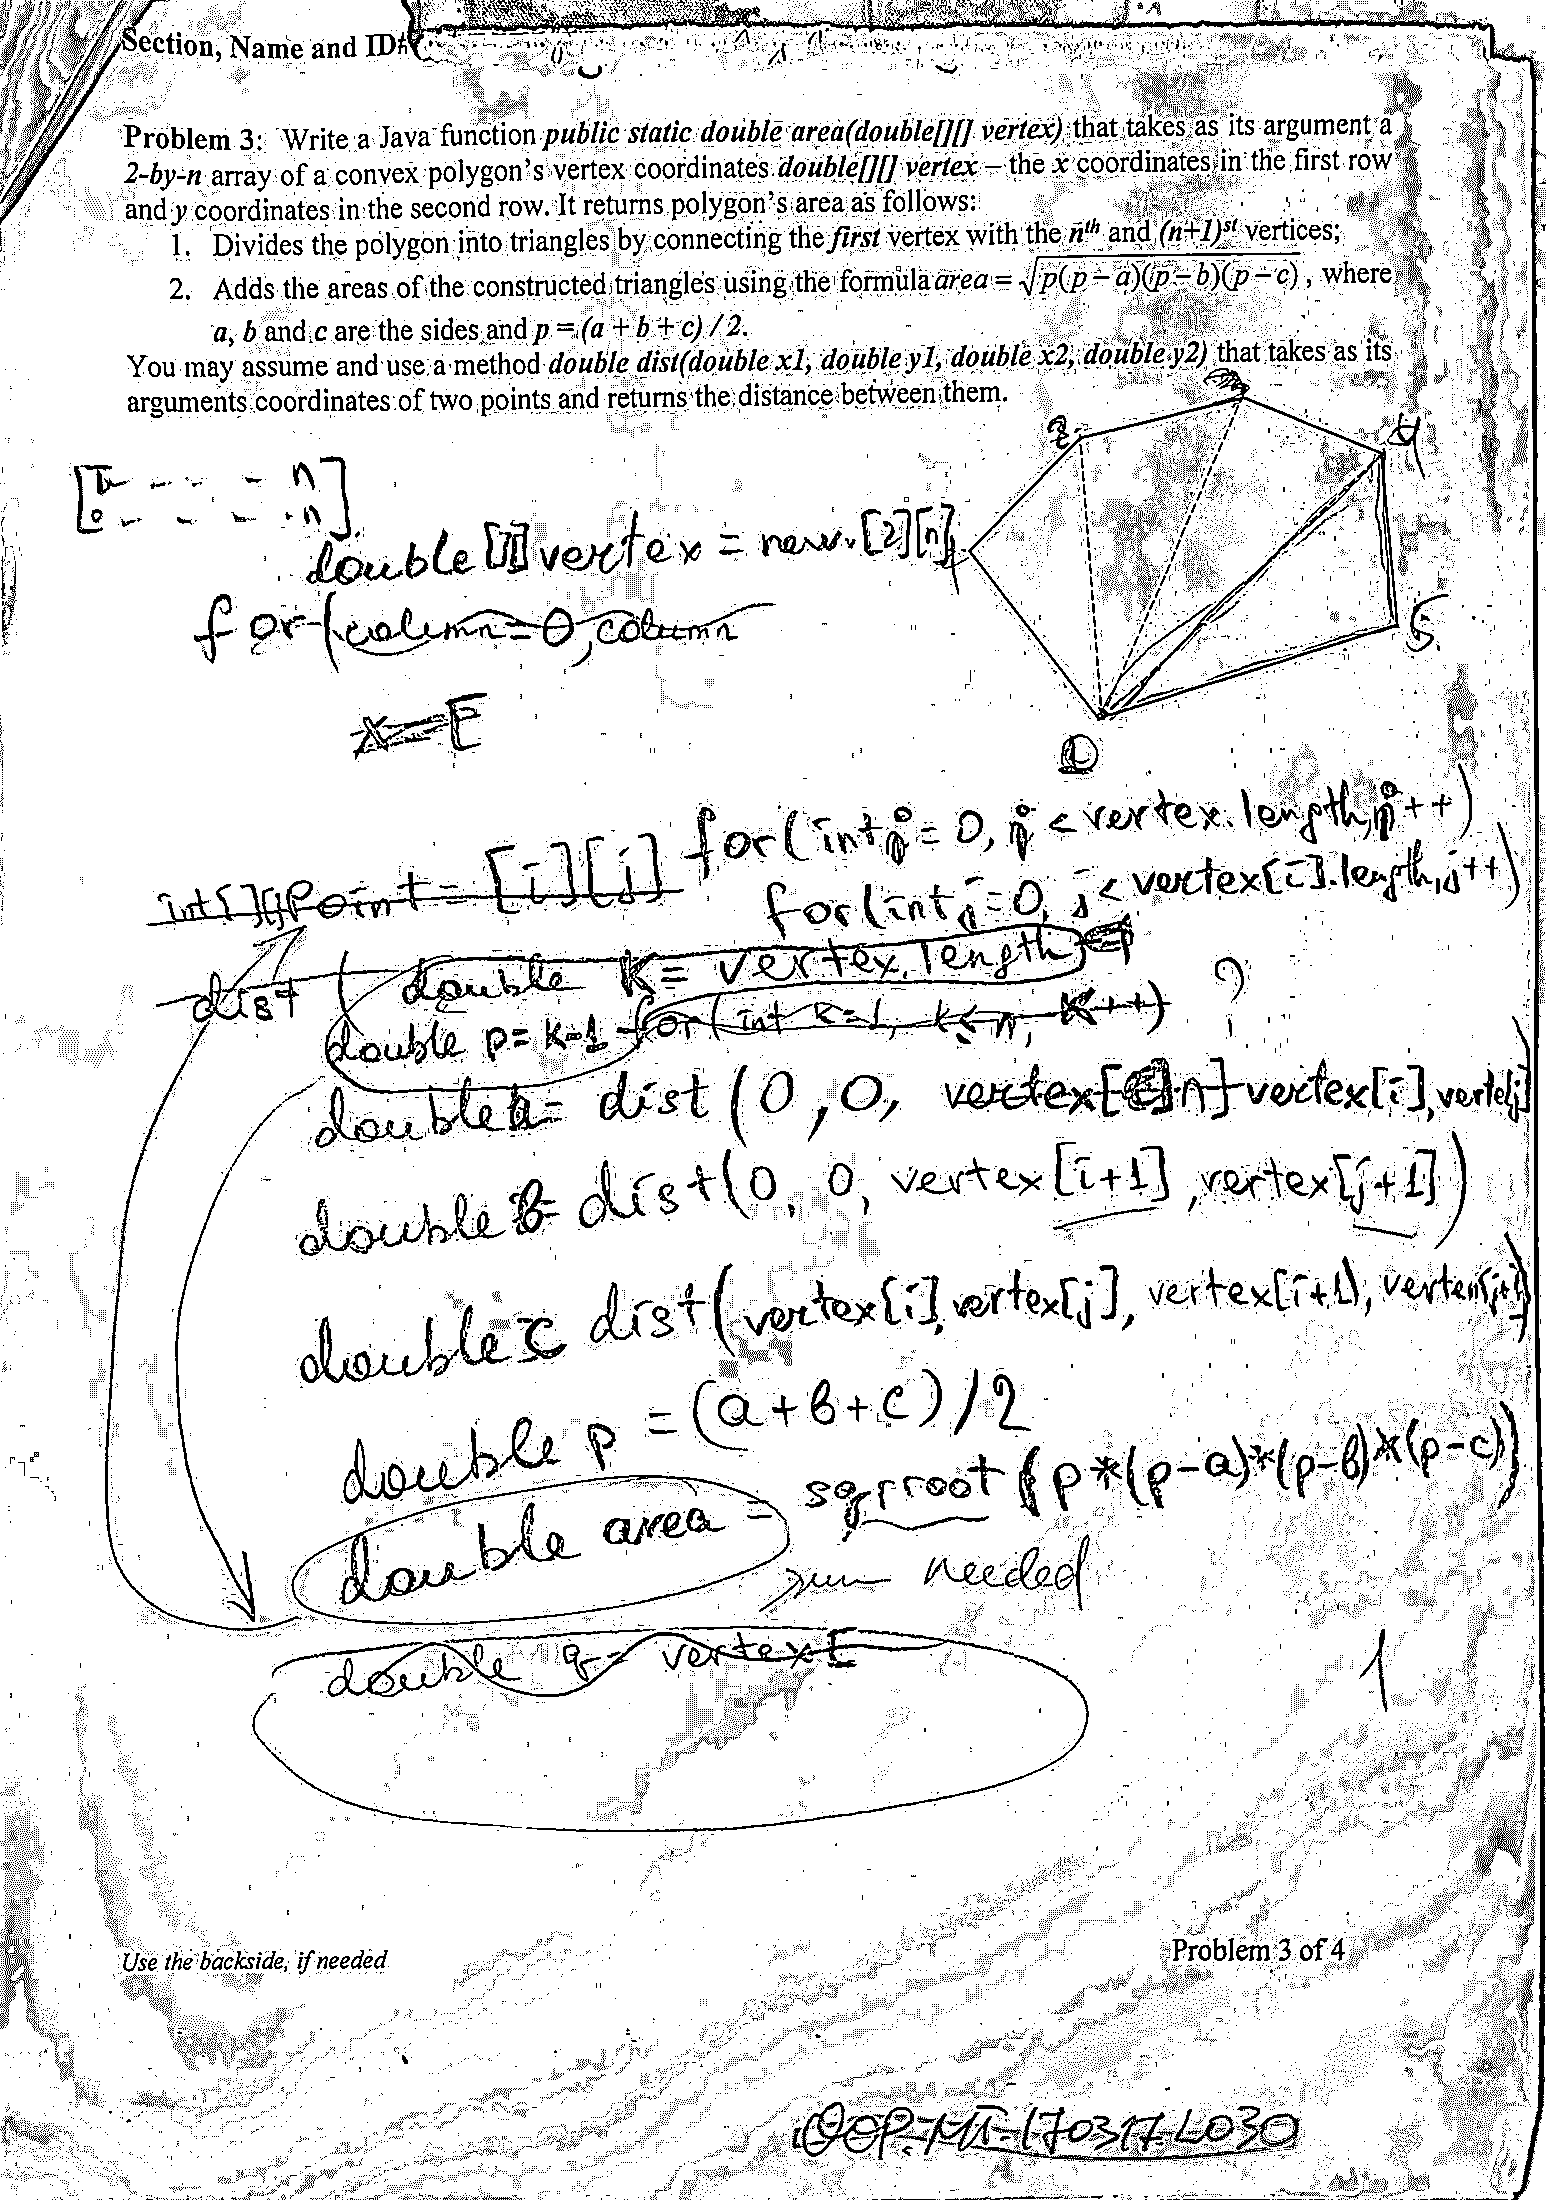 Section, Name and ID#
Problem 3: Write a Java function public static double area(double[][] vertex) that takes as its argument a
2-by-n array of a convex polygon's vertex coordinates double[][] vertex – the x coordinates in the first row
and y coordinates in the second row. It returns polygon's area as follows:
1. Divides the polygon into triangles by connecting the first vertex with the nth and (n+1)st vertices;
2. Adds the areas of the constructed triangles using the formula area = √p(p − a)(p − b)(p − c) , where
a, b and c are the sides and p = (a + b + c) / 2.
You may assume and use a method double dist(double x1, double y1, double x2, double y2) that takes as its
arguments coordinates of two points and returns the distance between them.
2
4
[ - - - - n ]
[ 0 - - - - n ]
double [][] vertex = new [2][n]
for (column=0, column
5
x = [
0
for (int i = 0, i < vertex.length, i++)
int[][] Point = [i][j]
for (int j = 0, j < vertex[i].length, j++)
dist ( double k = vertex.length
double p = k-1 for (int k=1, k≤n, k++) ?
double a = dist (0, 0, vertex[n] vertex[i], vertex[j]
double b = dist (0, 0, vertex [i+1], vertex[j+1])
double c dist (vertex[i], vertex[j], vertex[i+1], vertex[j+1])
double p = (a+b+c)/2
double area = sqrroot (p*(p-a)*(p-b)*(p-c))
sum needed
double q = vertex[
1
Use the backside, if needed
Problem 3 of 4
OOP.MT.170317.L030